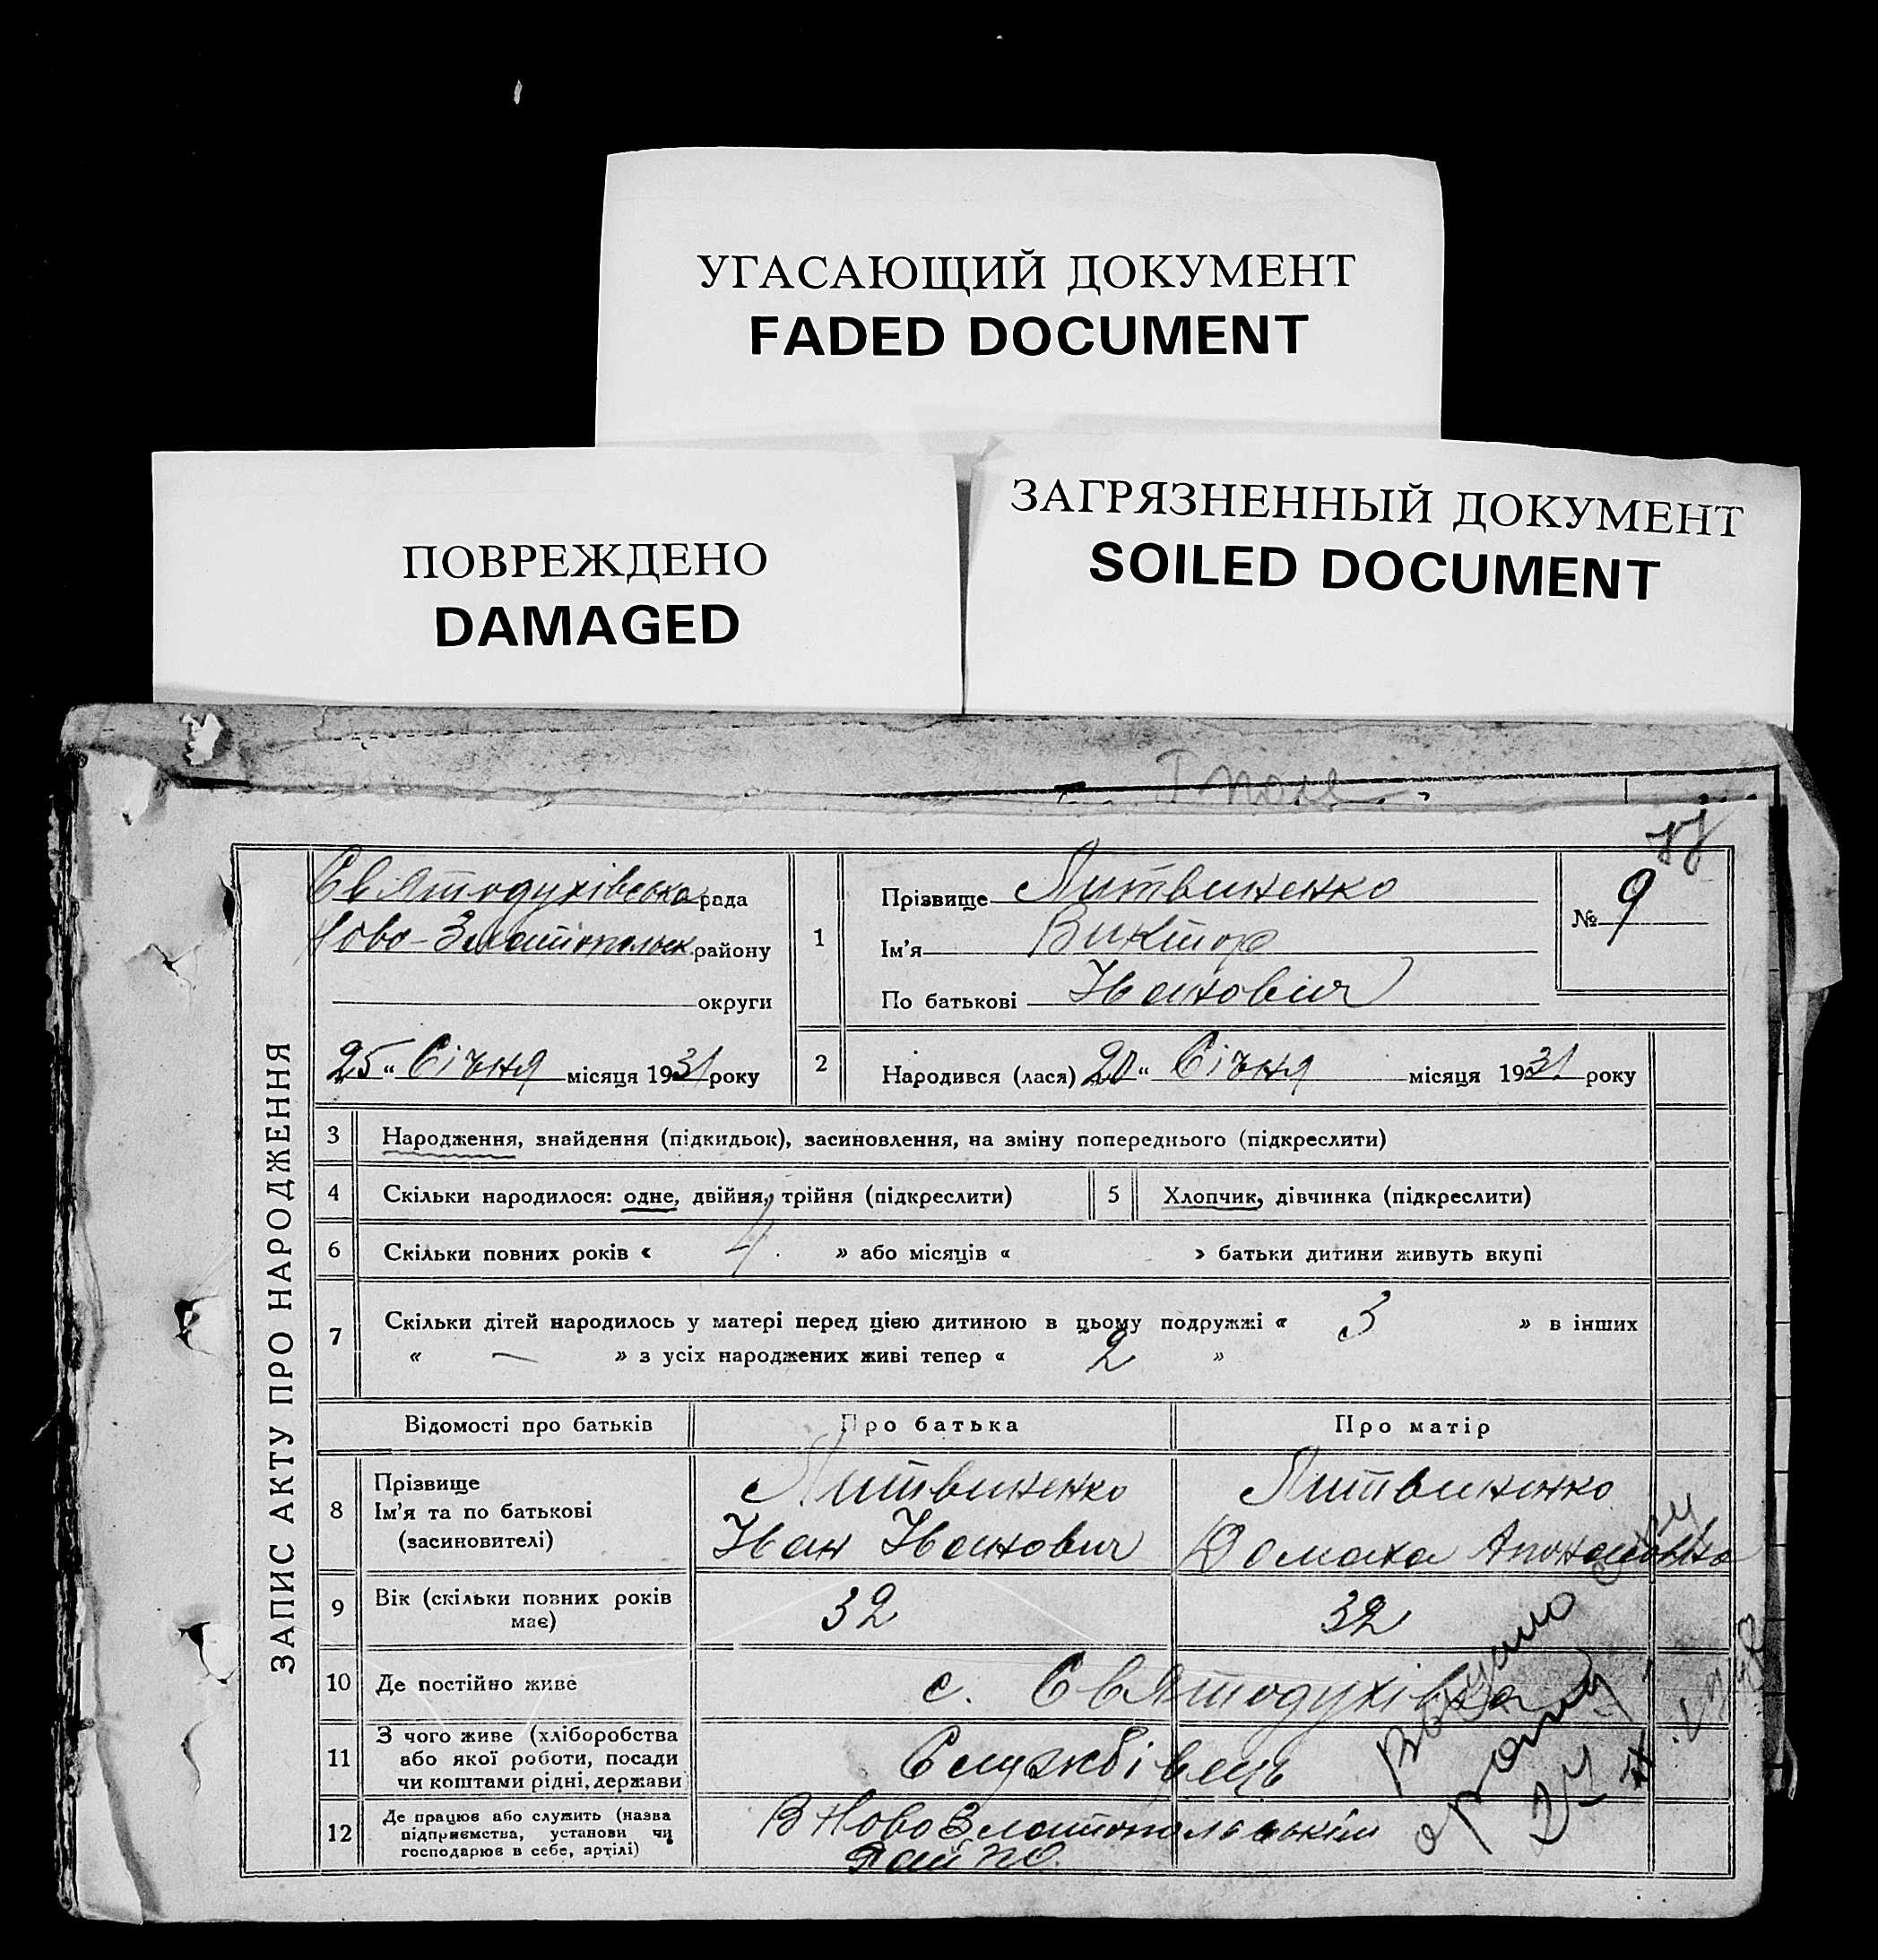 УГАСАЮЩИЙ ДОКУМЕНТ
FADED DOCUMENT
ПОВРЕЖДЕНО
DAMAGED
ЗАГРЯЗНЕННЫЙ ДОКУМЕНТ
SOILED DOCUMENT
ЗАПИС АКТУ ПРО НАРОДЖЕННЯ
Святодухівська рада
Ново-Златопольск. району
округи
25 " Січня місяця 1931 року
1
Прізвище Литвиненко
Ім'я Виктор
По батькові Иванович
№ 9
2
Народився (лася) 20 " Січня місяця 1931 року
3 Народження, знайдення (підкидьок), засиновлення, на зміну попереднього (підкреслити)
4 Скільки народилося: одне, двійня, трійня (підкреслити) 5 Хлопчик, дівчинка (підкреслити)
6 Скільки повних років « 4 » або місяців « » батьки дитини живуть вкупі
7 Скільки дітей народилось у матері перед цією дитиною в цьому подружжі « 3 » в інших
« — » з усіх народжених живі тепер « 2 »
Відомості про батьків Про батька Про матір
8 Прізвище Литвиненко Литвиненко
Ім'я та по батькові Иван Иванович Домаха
(засиновителі)
9 Вік (скільки повних років має) 32 32
10 Де постійно живе с. Святодухівка
11 З чого живе (хліборобства
або якої роботи, посади
чи коштами рідні, держави
Службівець
12 Де працює або служить (назва
підприємства, установи чи
господарює в себе, артілі)
В Ново Златопольським
Рай по.